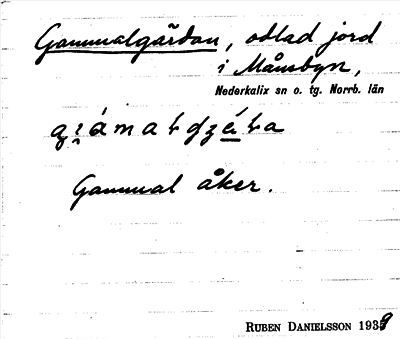 Gammalgärdan, odlad jord
i Månsbyn,
Nederkalix sn o. tg. Norrb. län
Gammal åker.
RUBEN DANIELSSON 1939